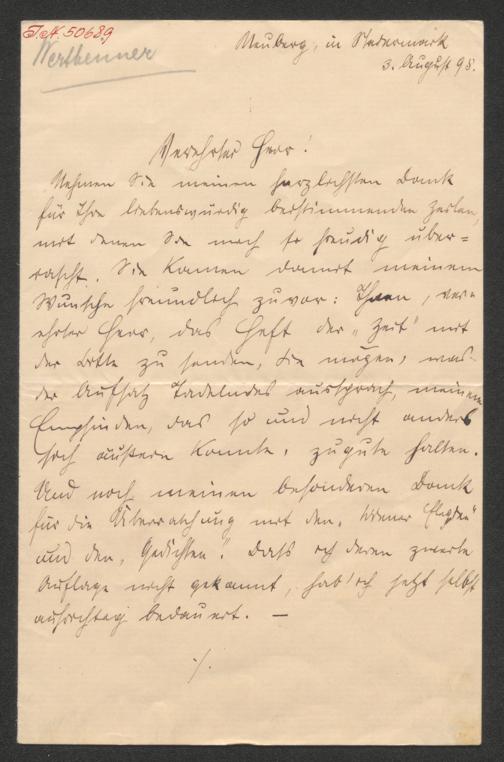 I.N. 50689
Wertheimer
Neuberg, in Steiermark
3. August 98.
Verehrter Herr!
Nehmen Sie meinen herzlichsten Dank
für Ihre liebenswürdig beistimmenden Zeilen,
mit denen Sie mich so freudig über=
rascht. Sie kamen damit meinem
Wunsche freundlich zuvor: Ihnen, ver=
ehrter Herr, das Heft der „Zeit" mit
der Bitte zu senden, Sie mögen, was
der Aufsatz Tadelndes aussprach, meinem
Empfinden, das so und nicht anders
sich äußern konnte, zugute halten.
Und noch meinen besonderen Dank
für die Überraschung mit den „Wiener Elegien"
und den „Gedichten". Dass ich deren zweite
Auflage nicht gekannt, hab' ich jetzt selbst
aufrichtig bedauert. —
./.